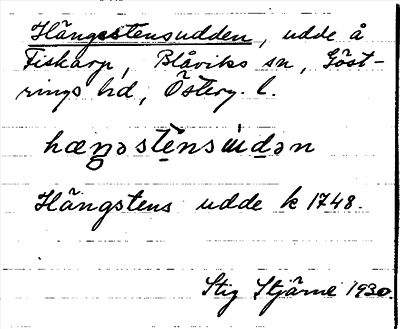 Hängestensudden, udde å
Fiskarp, Blåviks sn, Göst-
rings hd, Österg. l.
hæŋəste̠nsùd̠ən
Hängstens udde k 1748.
Stig Stjärne 1930.